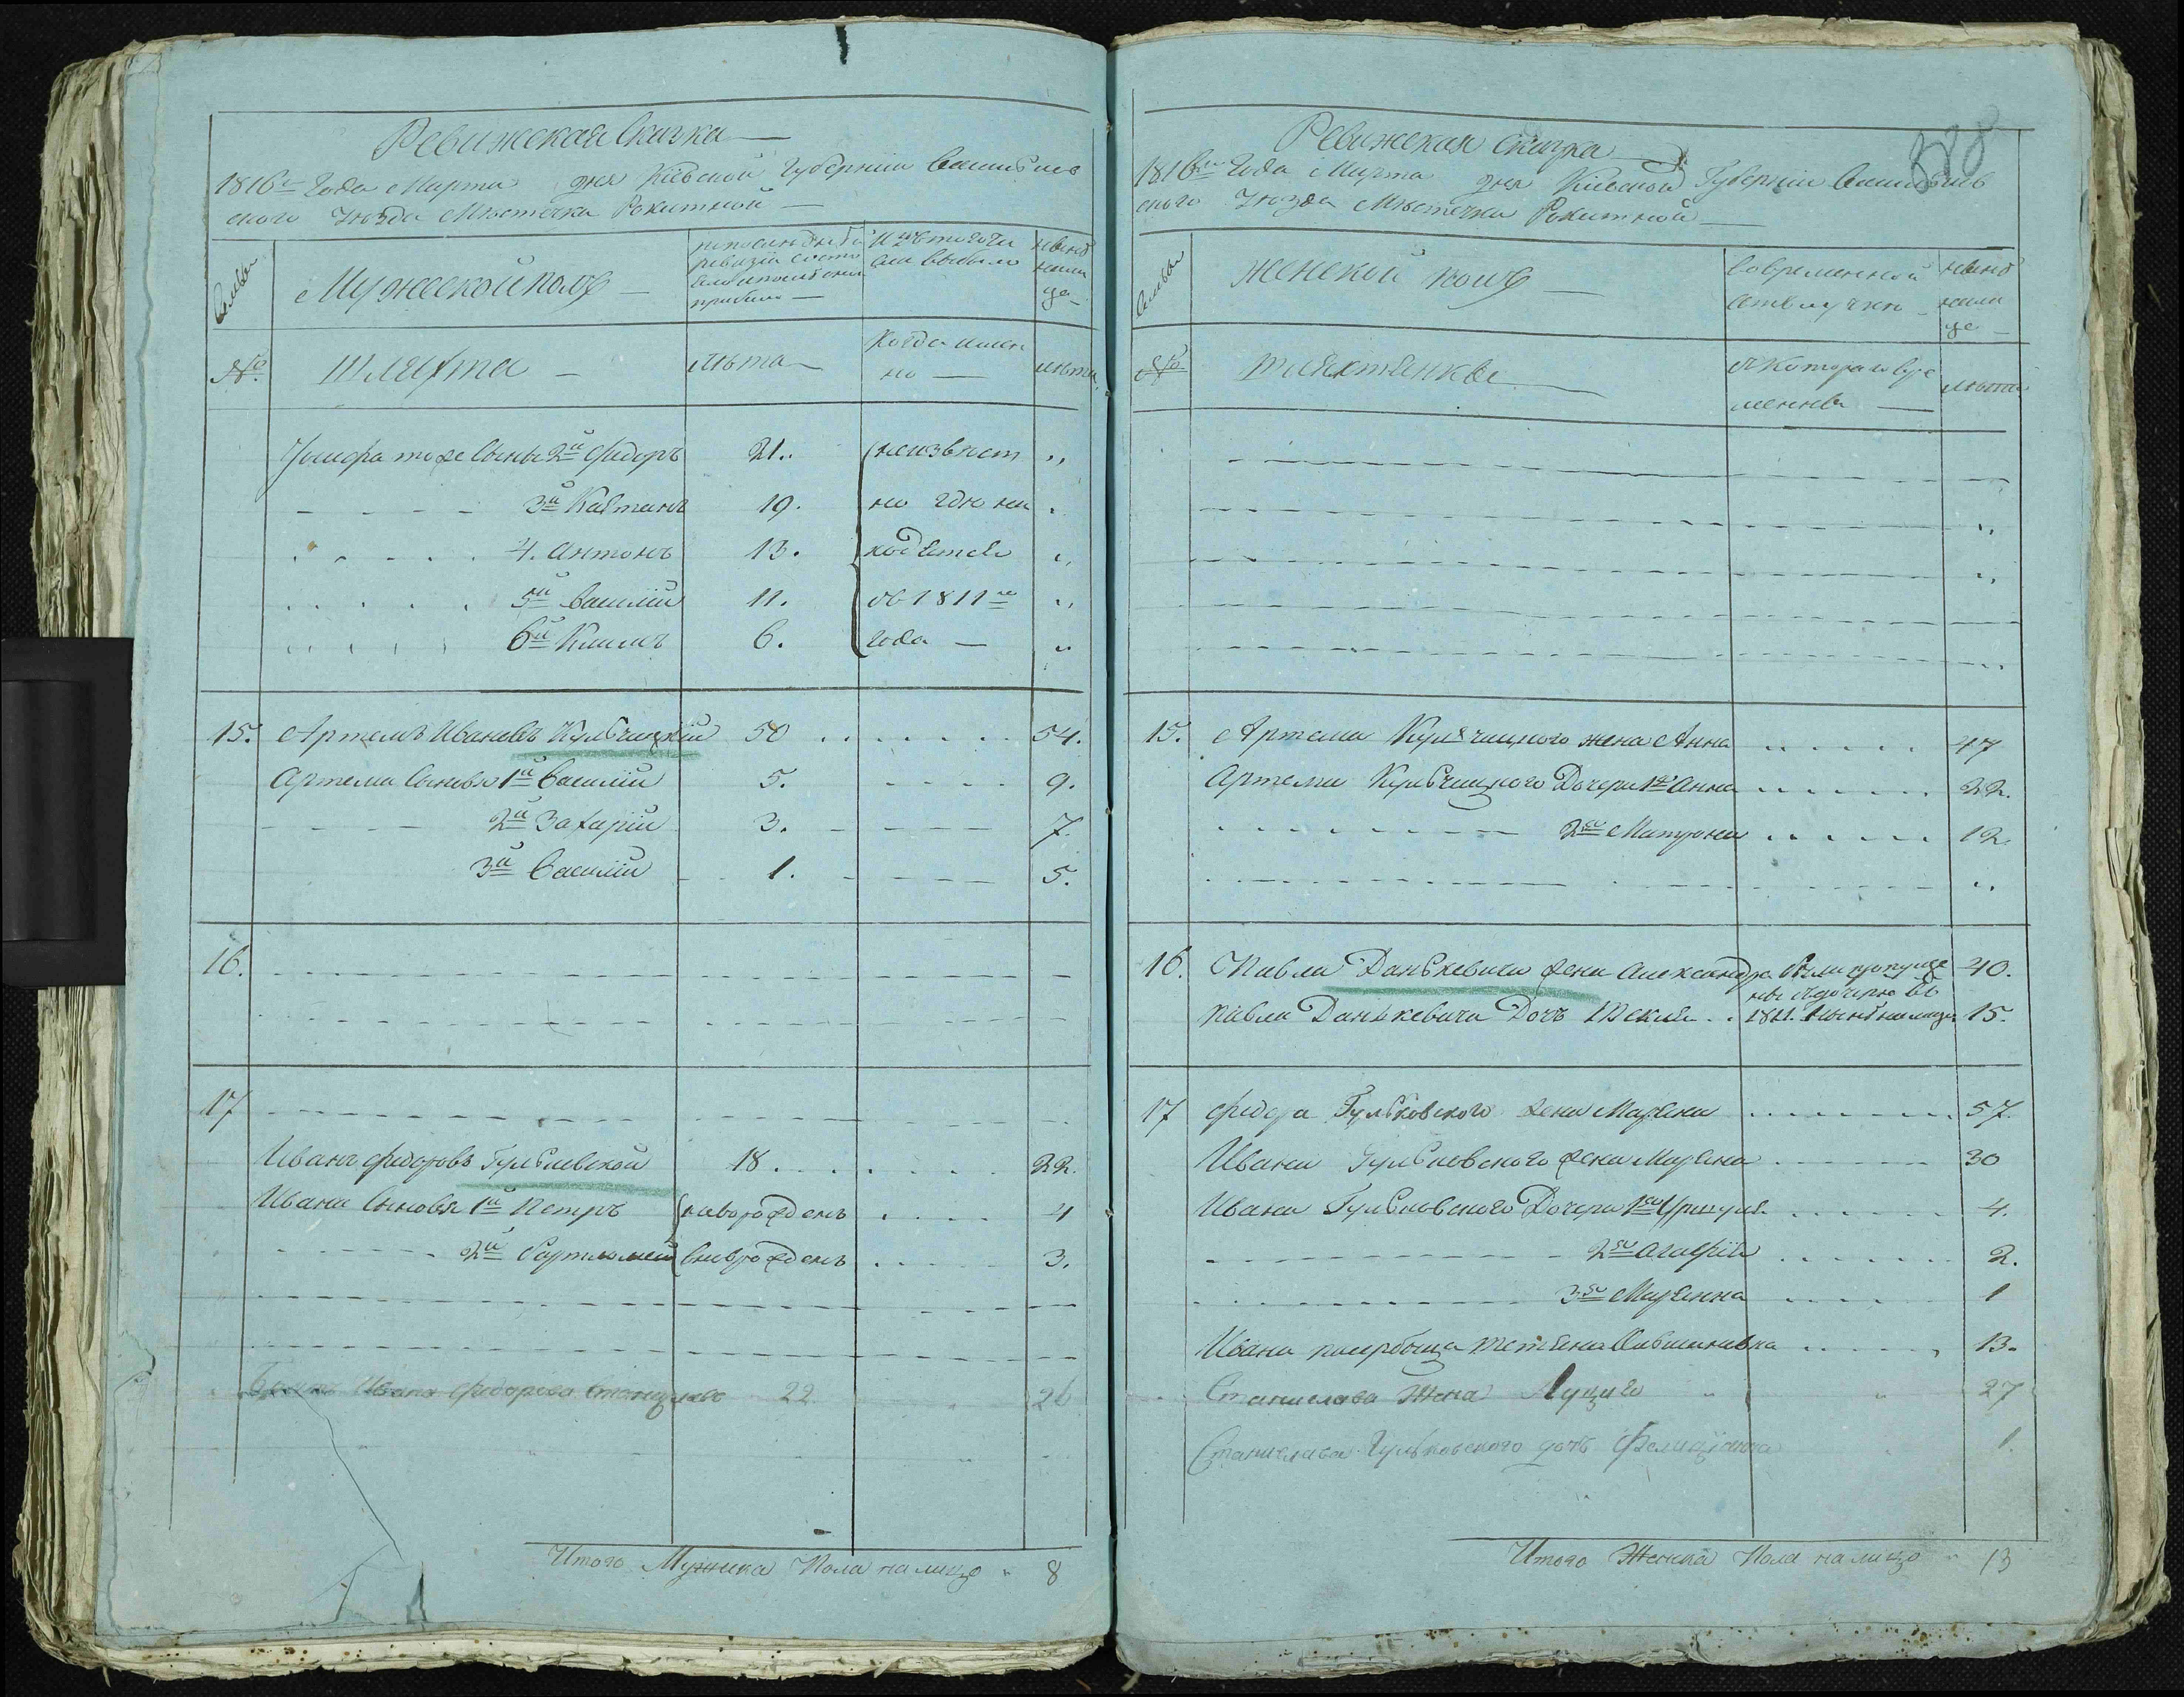 Ревижская Сказка —
1816го Года Марта дня Кіевской Губерніи Васильков
ского Уѣзда Мѣстечка Рокитной —
Семьи
Мужеской полъ —
по последней
ревизіи состо
яло и после оной
прибыло —
Изъ того числа
выбыло
ныне
нали
це —
№.
Шляхта —
лѣта —
Когда имен
но —
лѣта
тоже Сыны 2й Федоръ 21. неизвест „
3й Каетанъ 19. но где на „
4. Антонъ 13. ходятся „
5й Василій 11. съ 1811го „
6й Климъ 6. года — „
15. Артемъ Ивановъ Кульчицкій 50 54.
Артема Сыновья 1й Василій 5. 9.
2й Захарій 3. 7.
3й Василій 1. 5.
16.
17
Иванъ Федоровъ Гульковской 18. 22.
Ивана Сыновья 1й Петръ новорожденъ 4
2й Вартоломей новорожденъ 3.
Братъ Ивана Федорова Станиславъ 22 26
Итого Мужска Пола на лицо „ 8
338
Ревижская сказка
1816го Года Марта дня Кіевской Губерніи Васильков
ского Уѣзда Мѣстечка Рокитной —
Семьи
женской полъ —
Во временной
отлучки —
ныне
нали
це —
№.
шляхтянки
Съ которого вре
менны —
лѣта
„
„
„
15. Артема Кульчицкого жена Анна 47
Артема Кульчицкого Дочери 1я Анна 22.
2я Матрона 12.
„
16. Павла Данькевича жена Александра были пропуще 40.
ны съ дочерью въ
Павла Данькевича Дочь Текля 1811. Ныне на лицо 15.
17 Федора Гульковского жена Марьяна 57.
Ивана Гульковского жена Марьяна 30
Ивана Гульковского Дочери 1я Уршуля 4.
2я Агафія 2.
3я Марьянна 1
Ивана Тетяна 13.
Станислава Жена Луция „ „ 27
Станислава Гульковского дочь Фелиціянна 1.
Итого Женска Пола на лицо „ 13